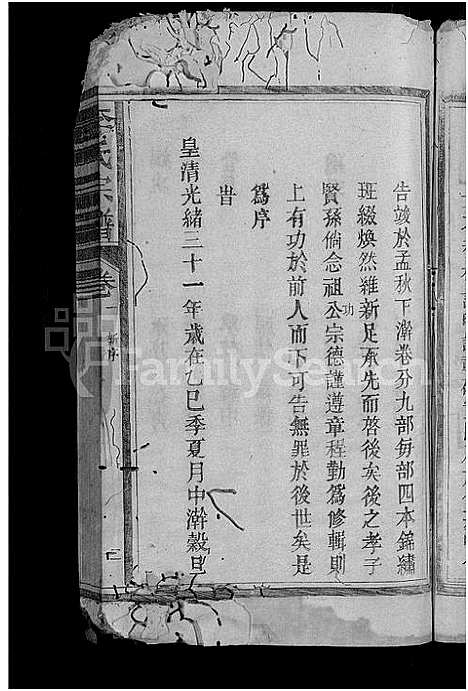 告竣於孟秋下澣卷分九部每部四本錦繡
班綴煥然維新足承先而啓後矣後之孝子
賢孫倘念祖功公宗德謹遵章程勤爲修輯則
上有功於前人而下可告無罪於後世矣是
爲序
昔
皇清光緒三十一年歲在乙巳季夏月中澣穀旦
李氏宗譜 卷一 新序
FamilySearch